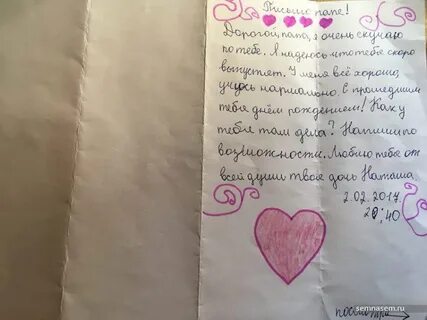 Письмо папе!
Дорогой папа, я очень скучаю
по тебе. Я надеюсь что тебя скоро
выпустят. У меня всё хорошо,
учусь нормально. С прошедшим
тебя днём рождением! Как у
тебя там дела? Напиши по
возможности. Люблю тебя от
всей души твоя дочь Наташа.
2.02.2017.
20:40
semnasem.ru